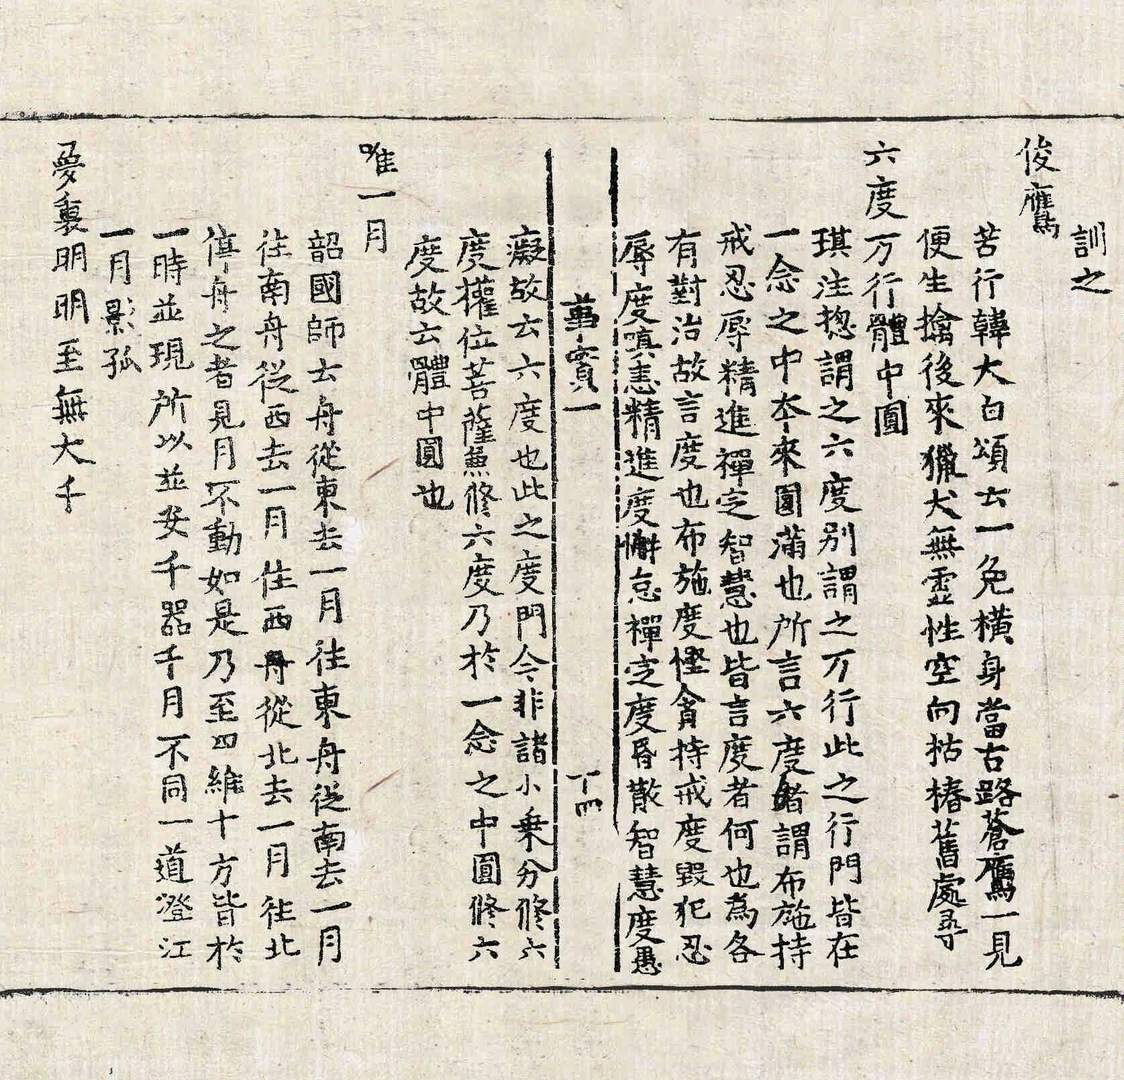 訓之
俊鷹
苦行韓大白頌云一兔橫身當古路蒼鷹一見
便生擒後來獵犬無靈性空向枯樁舊處尋
六度万行體中圓
琪注揔謂之六度別謂之万行此之行門皆在
一念之中本來圓滿也所言六度者謂布施持
戒忍辱精進禪定智慧也皆言度者何也為各
有對治故言度也布施度慳貪持戒度毀犯忍
辱度嗔恚精進度懈怠禪定度昏散智慧度愚
事實一
癡故云六度也此之度門今非諸小乘分修六
度權位菩薩魚修六度乃於一念之中圓修六
度故云體中圓也
唯一月
韶國師云舟從東去一月往東舟從南去一月
往南舟從西去一月往西舟從北去一月往北
停舟之者見月不動如是乃至四維十方皆於
一時並現所以並安千器千月不同一道澄江
一月影孤
夢裏明明至無大千